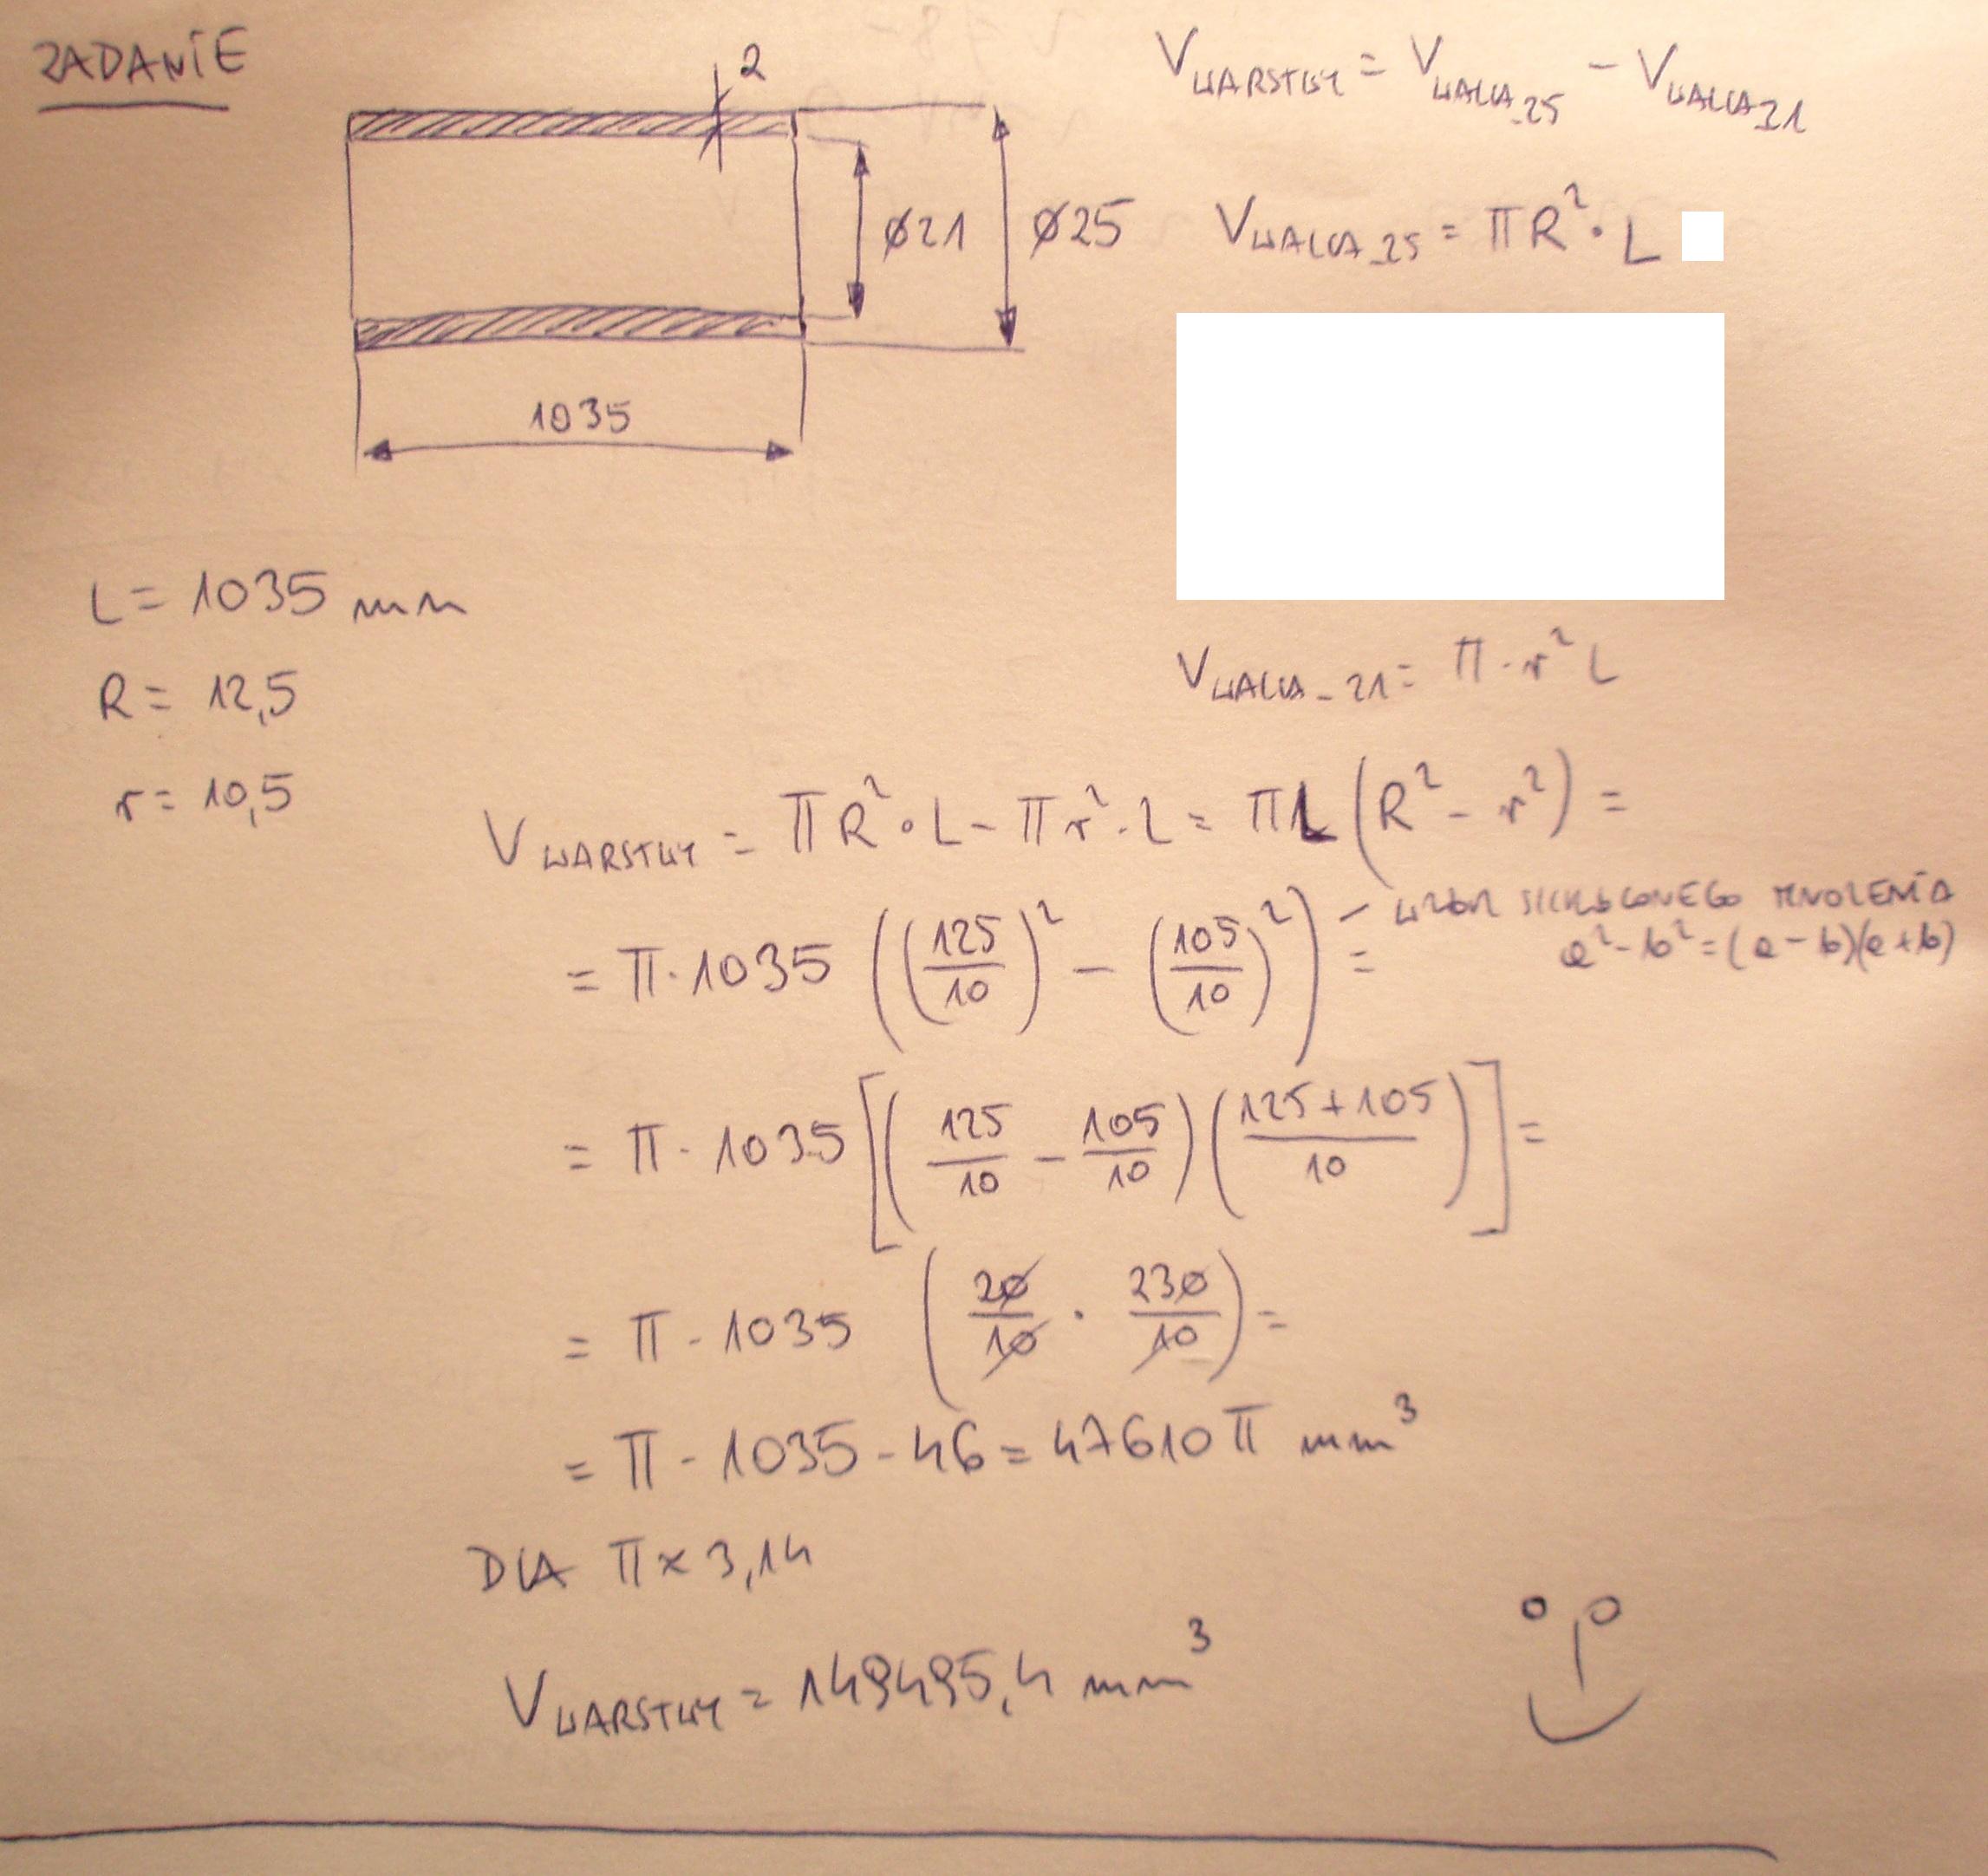 ZADANIE
2
⌀21
⌀25
1035
V WARSTWY = V WALCA_25 - V WALCA_21
V WALCA_25 = πR² · L
L = 1035 mm
R = 12,5
r = 10,5
V WALCA_21 = π · r² L
V WARSTWY = πR² · L - πr² · L = πL (R² - r²) =
= π · 1035 ((125/10)² - (105/10)²) = - WZÓR SKRÓCONEGO MNOŻENIA
a² - b² = (a - b)(a + b)
= π · 1035 [(125/10 - 105/10)((125 + 105)/10)] =
= π · 1035 (20/10 · 230/10) =
= π · 1035 · 46 = 47610 π mm³
DLA π ≈ 3,14
V WARSTWY = 149495,4 mm³